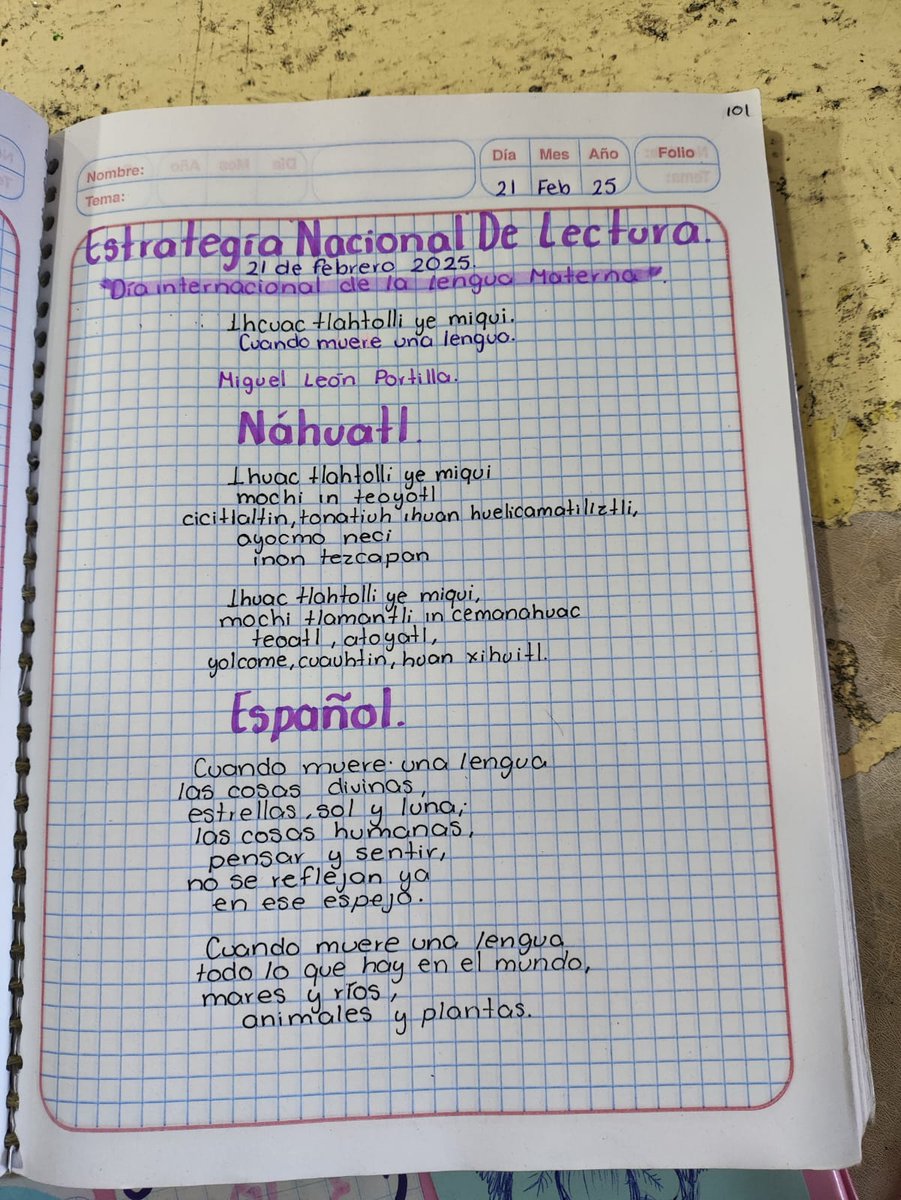 101
Nombre:
Tema:
Día Mes Año
21 Feb 25
Folio
Estrategía Nacional De Lectura.
21 de febrero 2025.
"Día internacional de la lengua Materna".
Ihcuac tlahtolli ye miqui.
Cuando muere una lengua.
Miguel León Portilla.
Náhuatl.
Ihuac tlahtolli ye miqui
mochi in teoyotl
cicitlaltin, tonatiuh ihuan huelicamatiliztli,
ayocmo neci
inon tezcapan
Ihuac tlahtolli ye miqui,
mochi tlamantli in cemanahuac
teoatl, atoyatl,
yolcome, cuauhtin, huan xihuitl.
Español.
Cuando muere una lengua
las cosas divinas,
estrellas, sol y luna;
las cosas humanas,
pensar y sentir,
no se reflejan ya
en ese espejo.
Cuando muere una lengua
todo lo que hay en el mundo,
mares y ríos,
animales y plantas.